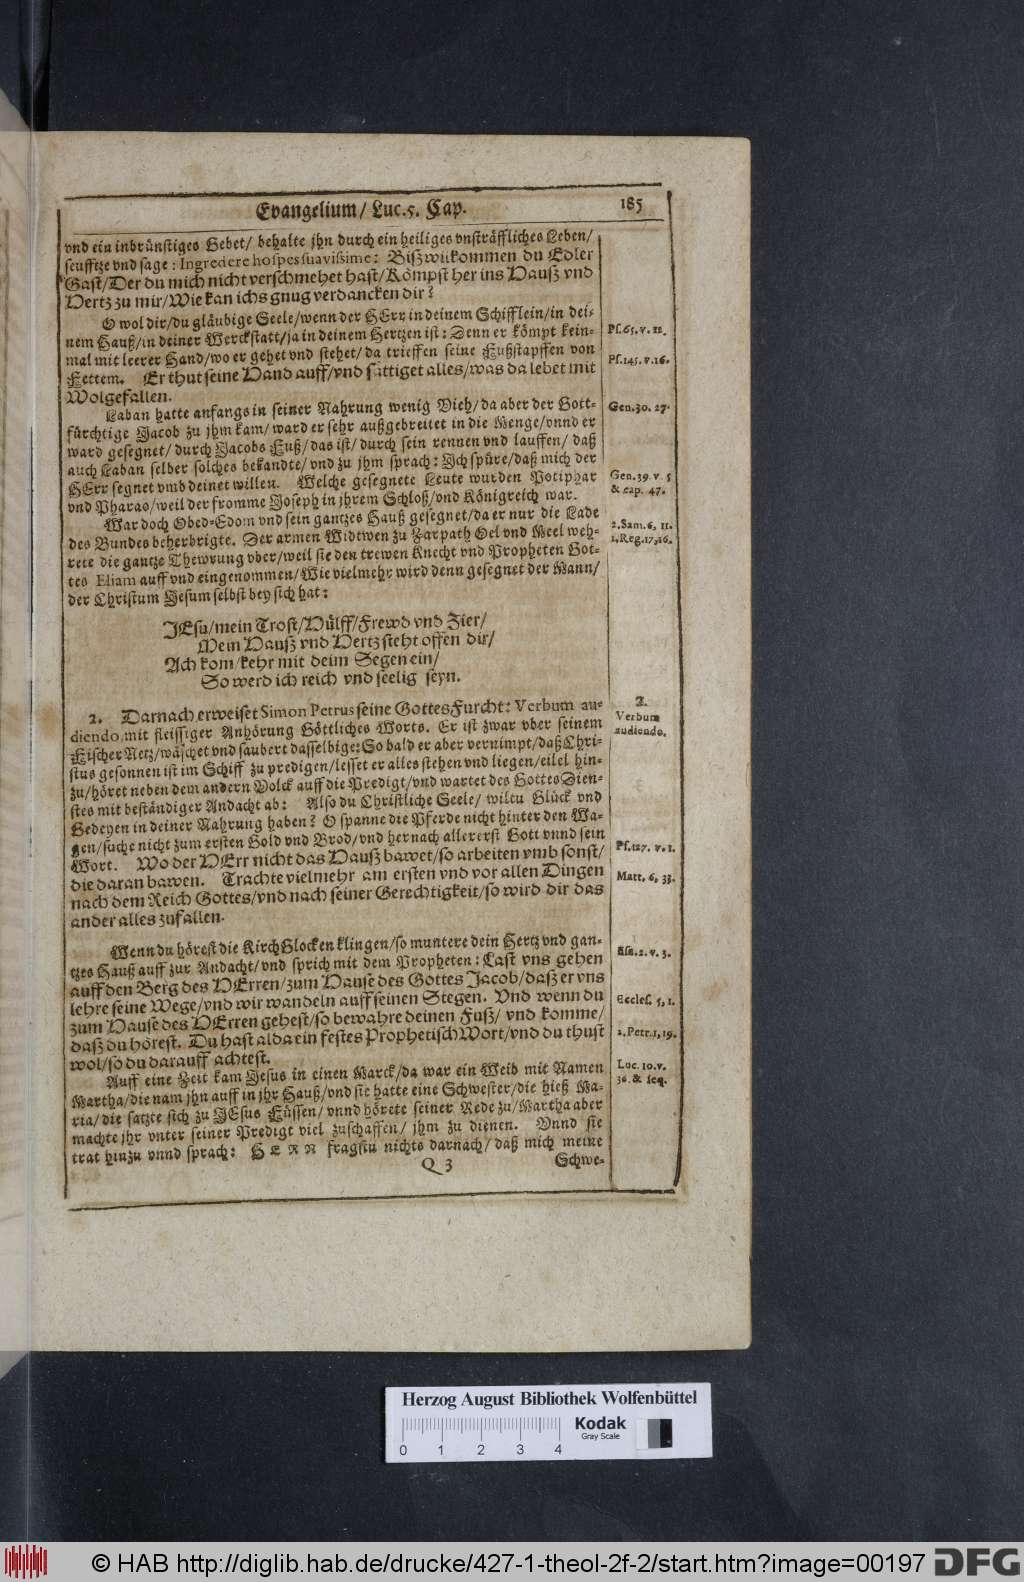 Evangelium/ Luc.5. Cap. 185
vnd ein inbrünstiges Gebet/ behalte jhn durch ein heiliges vnsträffliches Leben/
seufftze vnd sage: Ingredere hospes suavissime: Biß willkommen du Edler
Gast/Der du mich nicht verschmehet hast/Kömpst her ins Hauß vnd
Hertz zu mir/Wie kan ichs gnug verdancken dir?
O wol dir/du gläubige Seele/wenn der HErr in deinem Schifflein/in dei-
nem Hauß/in deiner Werckstatt/ja in deinem Hertzen ist: Denn er kömpt kein-
mal mit leerer Hand/wo er gehet vnd stehet/da trieffen seine Fußstapffen von
Fettem. Er thut seine Hand auff/vnd sättiget alles/was da lebet mit
Wolgefallen.
Laban hatte anfangs in seiner Nahrung wenig Vieh/da aber der Gott-
fürchtige Jacob zu jhm kam/ward er sehr außgebreitet in die Menge/vnnd er
ward gesegnet/durch Jacobs Fuß/das ist/durch sein rennen vnd lauffen/ daß
auch Laban selber solches bekandte/vnd zu jhm sprach: Ich spüre/daß mich der
HErr segnet vmb deinet willen. Welche gesegnete Leute wurden Potiphar
vnd Pharao/weil der fromme Joseph in jhrem Schloß/vnd Königreich war.
War doch Obed-Edom vnd sein gantzes Hauß gesegnet/da er nur die Lade
des Bundes beherbrigte. Der armen Widtwen zu Zarpath Oel vnd Meel weh-
rete die gantze Thewrung vber/weil sie den trewen Knecht vnd Propheten Got-
tes Eliam auff vnd eingenommen/Wie vielmehr wird denn gesegnet der Mann/
der Christum Jesum selbst bey sich hat:
JEsu/mein Trost/Hülff/Frewd vnd Zier/
Mein Hauß vnd Hertz steht offen dir/
Ach kom/kehr mit deim Segen ein/
So werd ich reich vnd seelig seyn.
2. Darnach erweiset Simon Petrus seine GottesFurcht: Verbum au-
diendo, mit fleissiger Anhörung Göttliches Worts. Er ist zwar vber seinem
FischerNetz/wäschet vnd säubert dasselbige: So bald er aber vernimpt/daß Chri-
stus gesonnen ist im Schiff zu predigen/lesset er alles stehen vnd liegen/eilet hin-
zu/höret neben dem andern Volck auff die Predigt/vnd wartet des GottesDien-
stes mit beständiger Andacht ab: Also du Christliche Seele/ wiltu Glück vnd
Gedeyen in deiner Nahrung haben? O spanne die Pferde nicht hinter den Wa-
gen/suche nicht zum ersten Gold vnd Brod/vnd hernach allererst Gott vnnd sein
Wort. Wo der HErr nicht das Hauß bawet/so arbeiten vmb sonst/
die daran bawen. Trachte vielmehr am ersten vnd vor allen Dingen
nach dem Reich Gottes/vnd nach seiner Gerechtigkeit/so wird dir das
ander alles zufallen.
Wenn du hörest die KirchGlocken klingen/so muntere dein Hertz vnd gan-
tzes Hauß auff zur Andacht/vnd sprich mit dem Propheten: Last vns gehen
auff den Berg des HErren/zum Hause des Gottes Jacob/daß er vns
lehre seine Wege/vnd wir wandeln auff seinen Stegen. Vnd wenn du
zum Hause des HErren gehest/so bewahre deinen Fuß/ vnd komme/
daß du hörest. Du hast alda ein festes Prophetisch Wort/vnd du thust
wol/so du darauff achtest.
Auff eine Zeit kam Jesus in einen Marck/da war ein Weib mit Namen
Martha/die nam jhn auff in jhr Hauß/vnd sie hatte eine Schwester/die hieß Ma-
ria/die satzte sich zu JEsus Füssen/ vnnd hörete seiner Rede zu/Martha aber
machte jhr vnter seiner Predigt viel zuschaffen/ jhm zu dienen. Vnnd sie
trat hinzu vnnd sprach: HERR fragstu nichts darnach/ daß mich meine
Q 3 Schwe-
Ps.65.v.12.
Ps.145.v.16.
Gen.30.27.
Gen.39.v.5
& cap. 47.
2.Sam.6, 11.
1.Reg.17,16.
2.
Verbum
audiendo.
Ps.127. v.1.
Matt. 6, 33.
Esa.2. v. 3.
Eccles. 5, 1.
2.Petr.1, 19.
Luc. 10.v.
36. & seq.
Herzog August Bibliothek Wolfenbüttel
0 1 2 3 4
Kodak
Gray Scale
© HAB http://diglib.hab.de/drucke/427-1-theol-2f-2/start.htm?image=00197
DFG